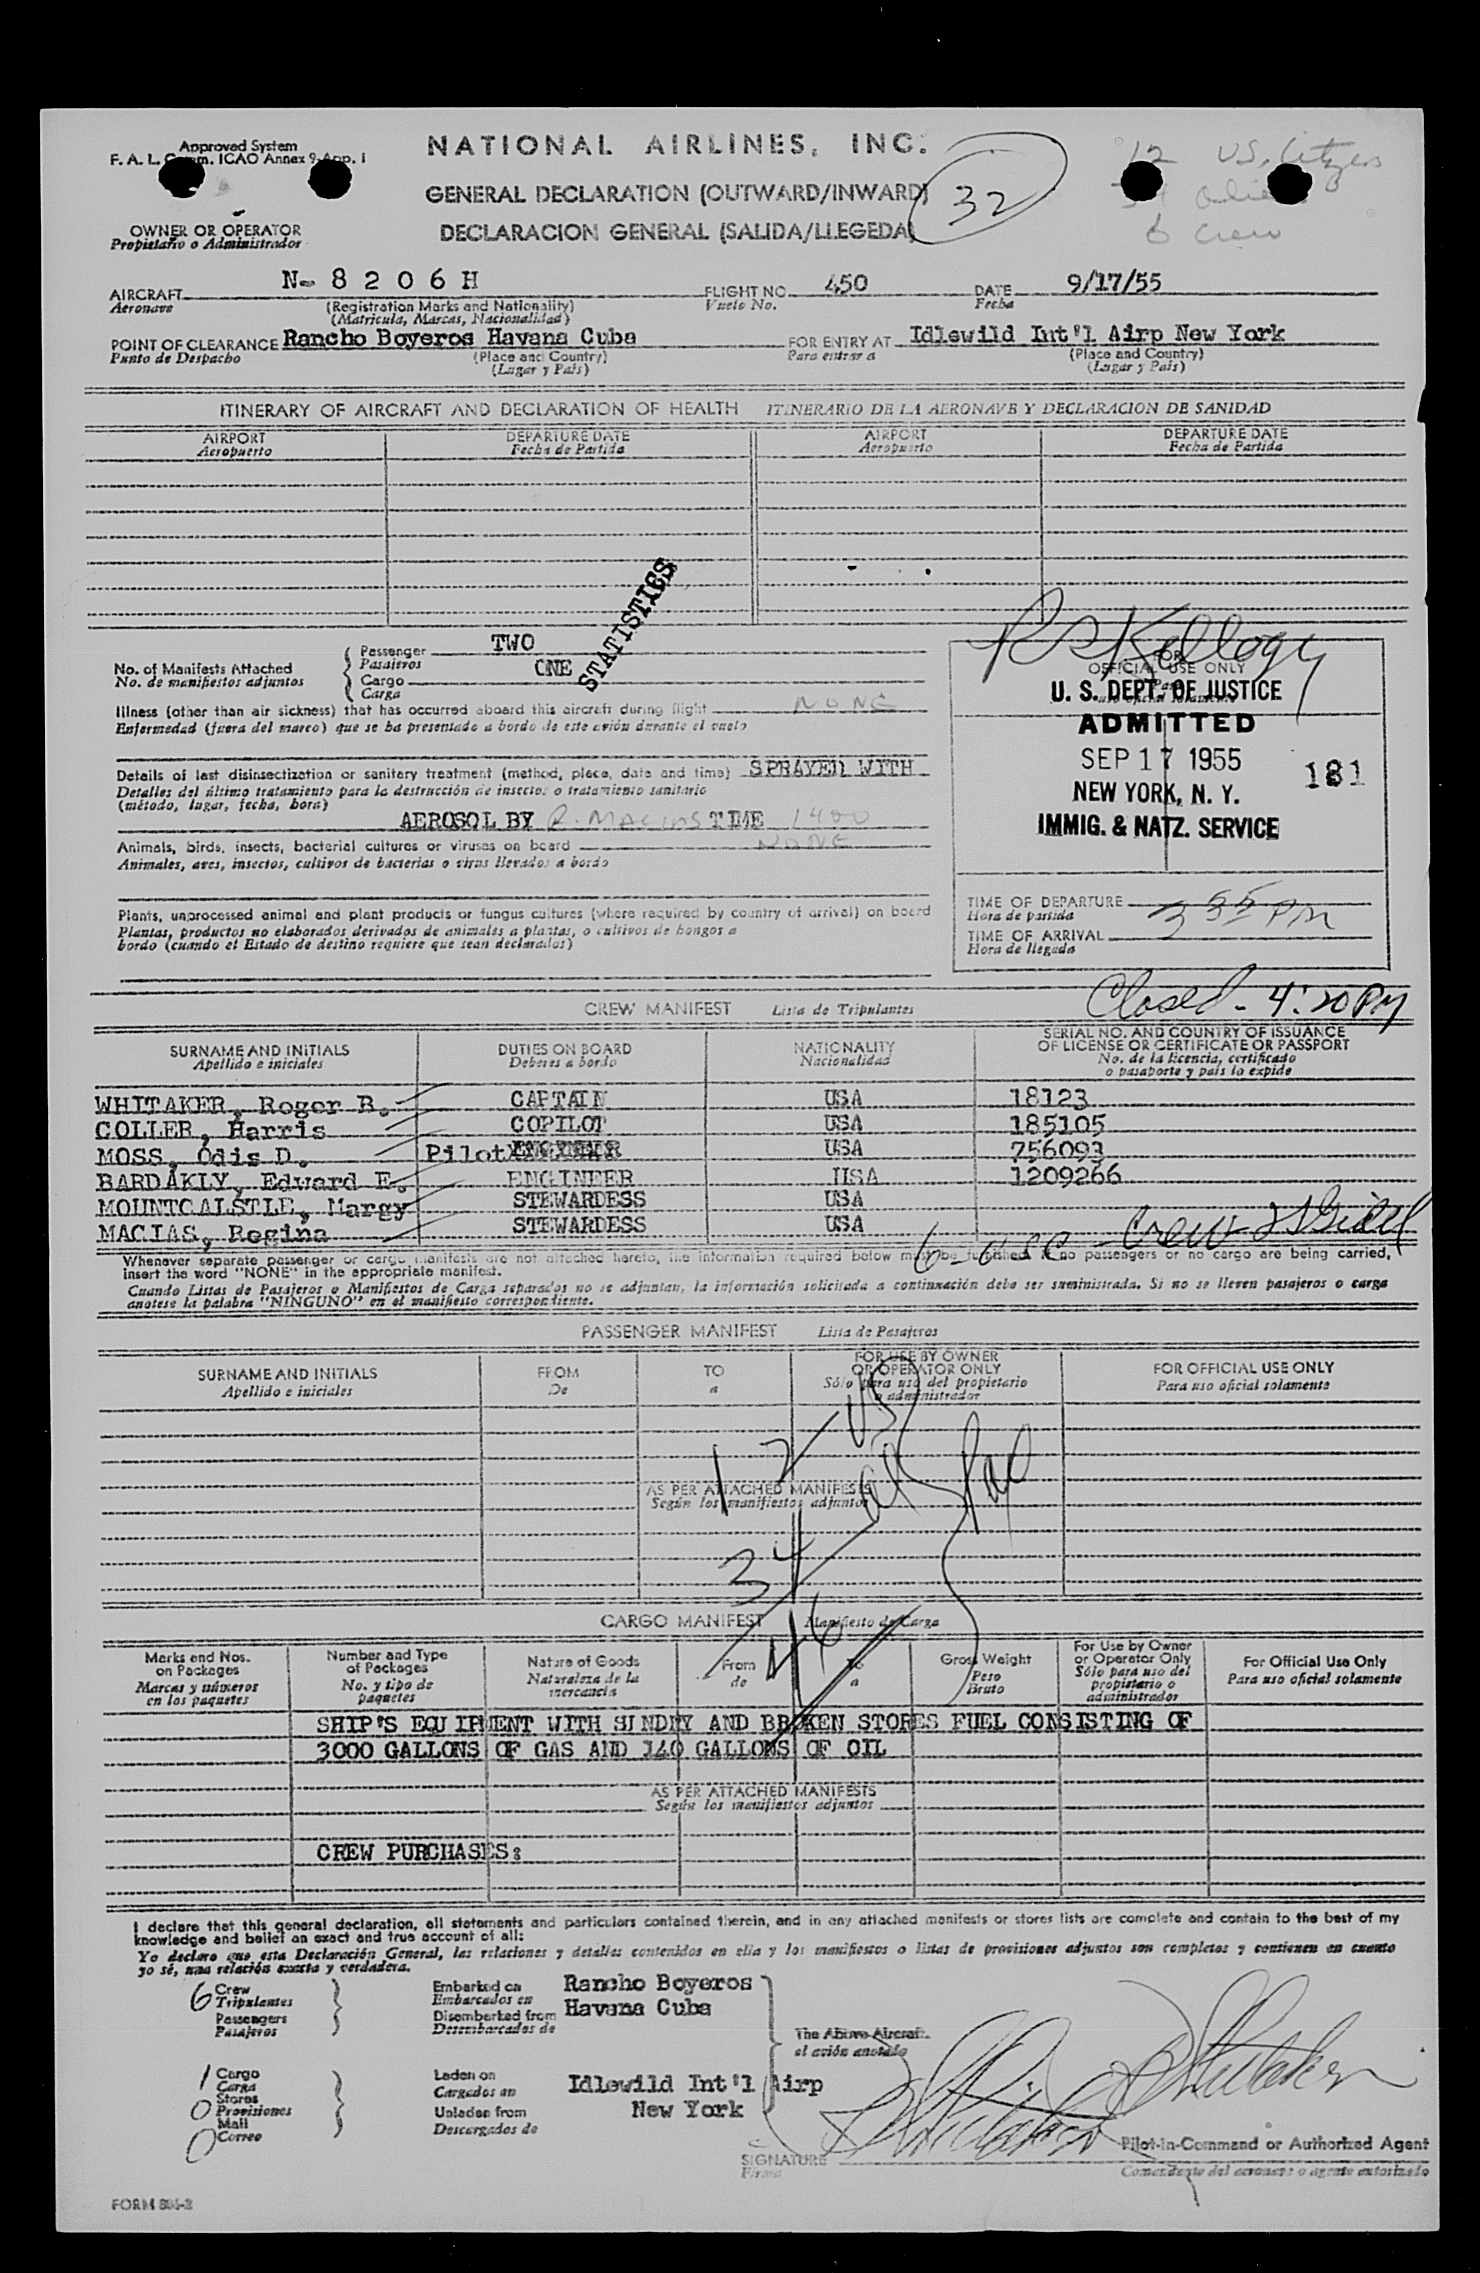 Approved System
F. A. L. Comm. ICAO Annex 9-App. 1
NATIONAL AIRLINES, INC.
12 US. Citizens
GENERAL DECLARATION (OUTWARD/INWARD)
32
34
DECLARACION GENERAL (SALIDA/LLEGEDA)
6 crew
OWNER OR OPERATOR
Propietario o Administrador
AIRCRAFT N- 8 2 0 6 H FLIGHT NO. 450 DATE 9/17/55
Aeronave (Registration Marks and Nationality) Vuelo No. Fecha
(Matricula, Marcas, Nacionalidad)
POINT OF CLEARANCE Rancho Boyeros Havana Cuba FOR ENTRY AT Idlewild Int'l Airp New York
Punto de Despacho (Place and Country) Para entrar a (Place and Country)
(Lugar y País) (Lugar y País)
ITINERARY OF AIRCRAFT AND DECLARATION OF HEALTH ITINERARIO DE LA AERONAVE Y DECLARACION DE SANIDAD
AIRPORT DEPARTURE DATE AIRPORT DEPARTURE DATE
Aeropuerto Fecha de Partida Aeropuerto Fecha de Partida
STATISTICS
No. of Manifests Attached
No. de manifiestos adjuntos
Passenger TWO
Pasajeros
Cargo ONE
Carga
Illness (other than air sickness) that has occurred aboard this aircraft during flight NONE
Enfermedad (fuera del mareo) que se ha presentado a bordo de este avión durante el vuelo
Details of last disinsectization or sanitary treatment (method, place, date and time) SPRAYED WITH
Detalles del último tratamiento para la destrucción de insectos o tratamiento sanitario
(método, lugar, fecha, hora)
AEROSOL BY R. MACIAS TIME 1400
Animals, birds, insects, bacterial cultures or viruses on board NONE
Animales, aves, insectos, cultivos de bacterias o virus llevados a bordo
Plants, unprocessed animal and plant products or fungus cultures (where required by country of arrival) on board
Plantas, productos no elaborados derivados de animales a plantas, o cultivos de hongos a
bordo (cuando el Estado de destino requiere que sean declarados)
Kellogg
FOR
OFFICIAL USE ONLY
U. S. DEPT. OF JUSTICE
ADMITTED
SEP 17 1955
181
NEW YORK, N. Y.
IMMIG. & NATZ. SERVICE
TIME OF DEPARTURE
Hora de partida
335 PM
TIME OF ARRIVAL
Hora de llegada
Closed - 4:20 PM
CREW MANIFEST Lista de Tripulantes
SURNAME AND INITIALS DUTIES ON BOARD NATIONALITY SERIAL NO. AND COUNTRY OF ISSUANCE
OF LICENSE OR CERTIFICATE OR PASSPORT
Apellido e iniciales Deberes a bordo Nacionalidad No. de la licencia, certificado
o pasaporte y país lo expide
WHITAKER, Roger B. CAPTAIN USA 18123
COLLER, Harris COPILOT USA 185105
MOSS, Odis D. Pilot USA 756093
BARDAKLY, Edward E. ENGINEER USA 1209266
MOUNTCALSTLE, Margy STEWARDESS USA
MACIAS, Regina STEWARDESS USA
6 - Crew
Whenever separate passenger or cargo manifests are not attached hereto, the information required below must be furnished. If no passengers or no cargo are being carried,
insert the word "NONE" in the appropriate manifest.
Cuando Listas de Pasajeros o Manifiestos de Carga separados no se adjuntan, la información solicitada a continuación debe ser suministrada. Si no se lleven pasajeros o carga
anotese la palabra "NINGUNO" en el manifiesto correspondiente.
PASSENGER MANIFEST Lista de Pasajeros
SURNAME AND INITIALS FROM TO FOR USE BY OWNER
OR OPERATOR ONLY FOR OFFICIAL USE ONLY
Apellido e iniciales De a Sólo para uso del propietario
o administrador Para uso oficial solamente
12 US
AS PER ATTACHED MANIFESTS
Según los manifiestos adjuntos
34
46
CARGO MANIFEST Manifiesto de Carga
Marks and Nos.
on Packages
Marcas y números
en los paquetes
Number and Type
of Packages
No. y tipo de
paquetes
Nature of Goods
Naturaleza de la
mercancia
From
de
To
a
Gross Weight
Peso
Bruto
For Use by Owner
or Operator Only
Sólo para uso del
propietario o
administrador
For Official Use Only
Para uso oficial solamente
SHIP'S EQUIPMENT WITH SUNDRY AND BROKEN STORES FUEL CONSISTING OF
3000 GALLONS OF GAS AND 140 GALLONS OF OIL
AS PER ATTACHED MANIFESTS
Según los manifiestos adjuntos
CREW PURCHASES:
I declare that this general declaration, all statements and particulars contained therein, and in any attached manifests or stores lists are complete and contain to the best of my
knowledge and belief an exact and true account of all:
Yo declaro que esta Declaración General, las relaciones y detalles contenidos en ella y los manifiestos o listas de provisiones adjuntos son completos y contienen en cuanto
yo sé, una relación exacta y verdadera.
6 Crew
Tripulantes
Passengers
Pasajeros
Embarked on
Embarcados en
Disembarked from
Desembarcados de
Rancho Boyeros
Havana Cuba
The Above Aircraft.
el avión anotado
1 Cargo
Carga
Stores
0 Provisiones
Mail
0 Correo
Laden on
Cargados en
Unladen from
Descargados de
Idlewild Int'l Airp
New York
SIGNATURE
Firma
Pilot-in-Command or Authorized Agent
Comandante del aeronave o agente autorizado
FORM 886-2